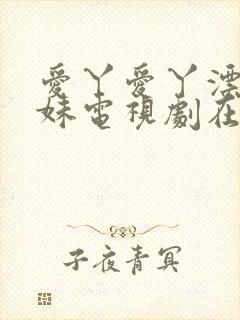 愛丫愛丫漂
妹電視劇在
子夜青冥